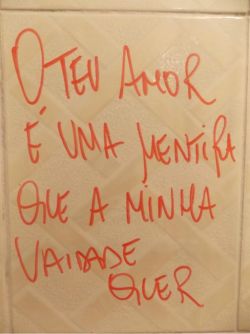 O TEU AMOR
É UMA MENTIRA
QUE A MINHA
VAIDADE
QUER